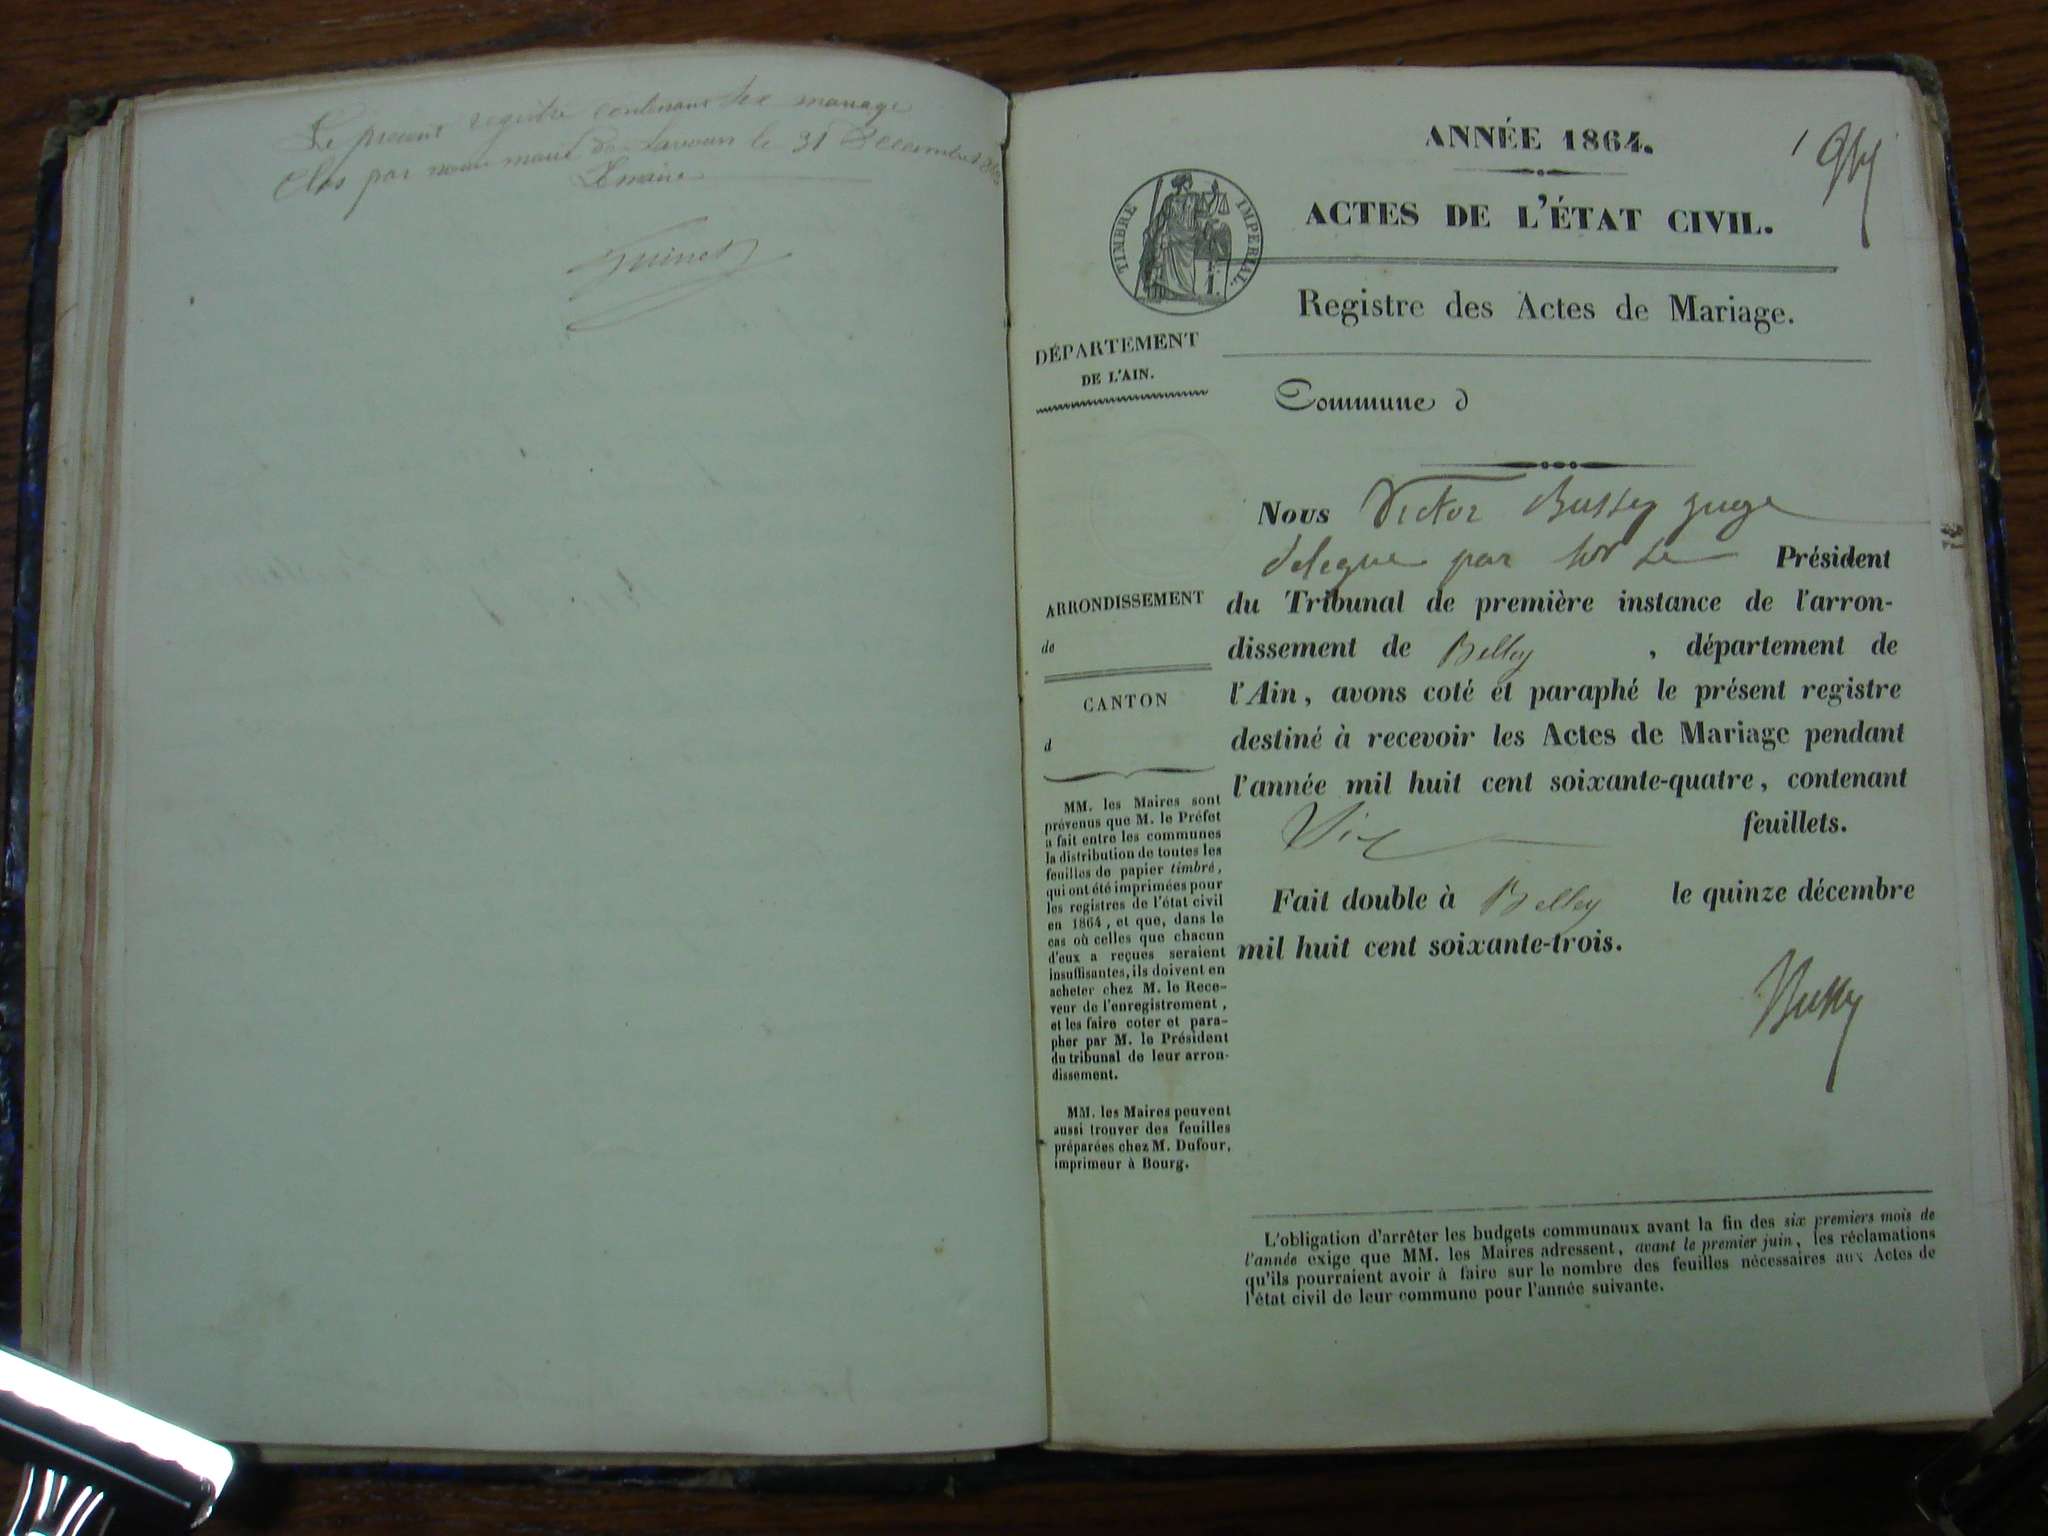 Le présent registre contenant six mariage
Clos par nous maire de Lavours le 31 Décembre
Le maire
ANNÉE 1864.
1
TIMBRE IMPERIAL.
ACTES DE L'ÉTAT CIVIL.
Registre des Actes de Mariage.
DÉPARTEMENT
DE L'AIN.
Commune d
ARRONDISSEMENT
de
CANTON
d
MM. les Maires sont
prévenus que M. le Préfet
a fait entre les communes
la distribution de toutes les
feuilles de papier timbré,
qui ont été imprimées pour
les registres de l'état civil
en 1864, et que, dans le
cas où celles que chacun
d'eux a reçues seraient
insuffisantes, ils doivent en
acheter chez M. le Rece-
veur de l'enregistrement,
et les faire coter et para-
pher par M. le Président
du tribunal de leur arron-
dissement.
MM. les Maires peuvent
aussi trouver des feuilles
préparées chez M. Dufour,
imprimeur à Bourg.
Nous Victor Bussy juge
delegue par Mr Le Président
du Tribunal de première instance de l'arron-
dissement de Belley, département de
l'Ain, avons coté et paraphé le présent registre
destiné à recevoir les Actes de Mariage pendant
l'année mil huit cent soixante-quatre, contenant
feuillets.
Fait double à Belley le quinze décembre
mil huit cent soixante-trois.
Bussy
L'obligation d'arrêter les budgets communaux avant la fin des six premiers mois de
l'année exige que MM. les Maires adressent, avant le premier juin, les réclamations
qu'ils pourraient avoir à faire sur le nombre des feuilles nécessaires aux Actes de
l'état civil de leur commune pour l'année suivante.